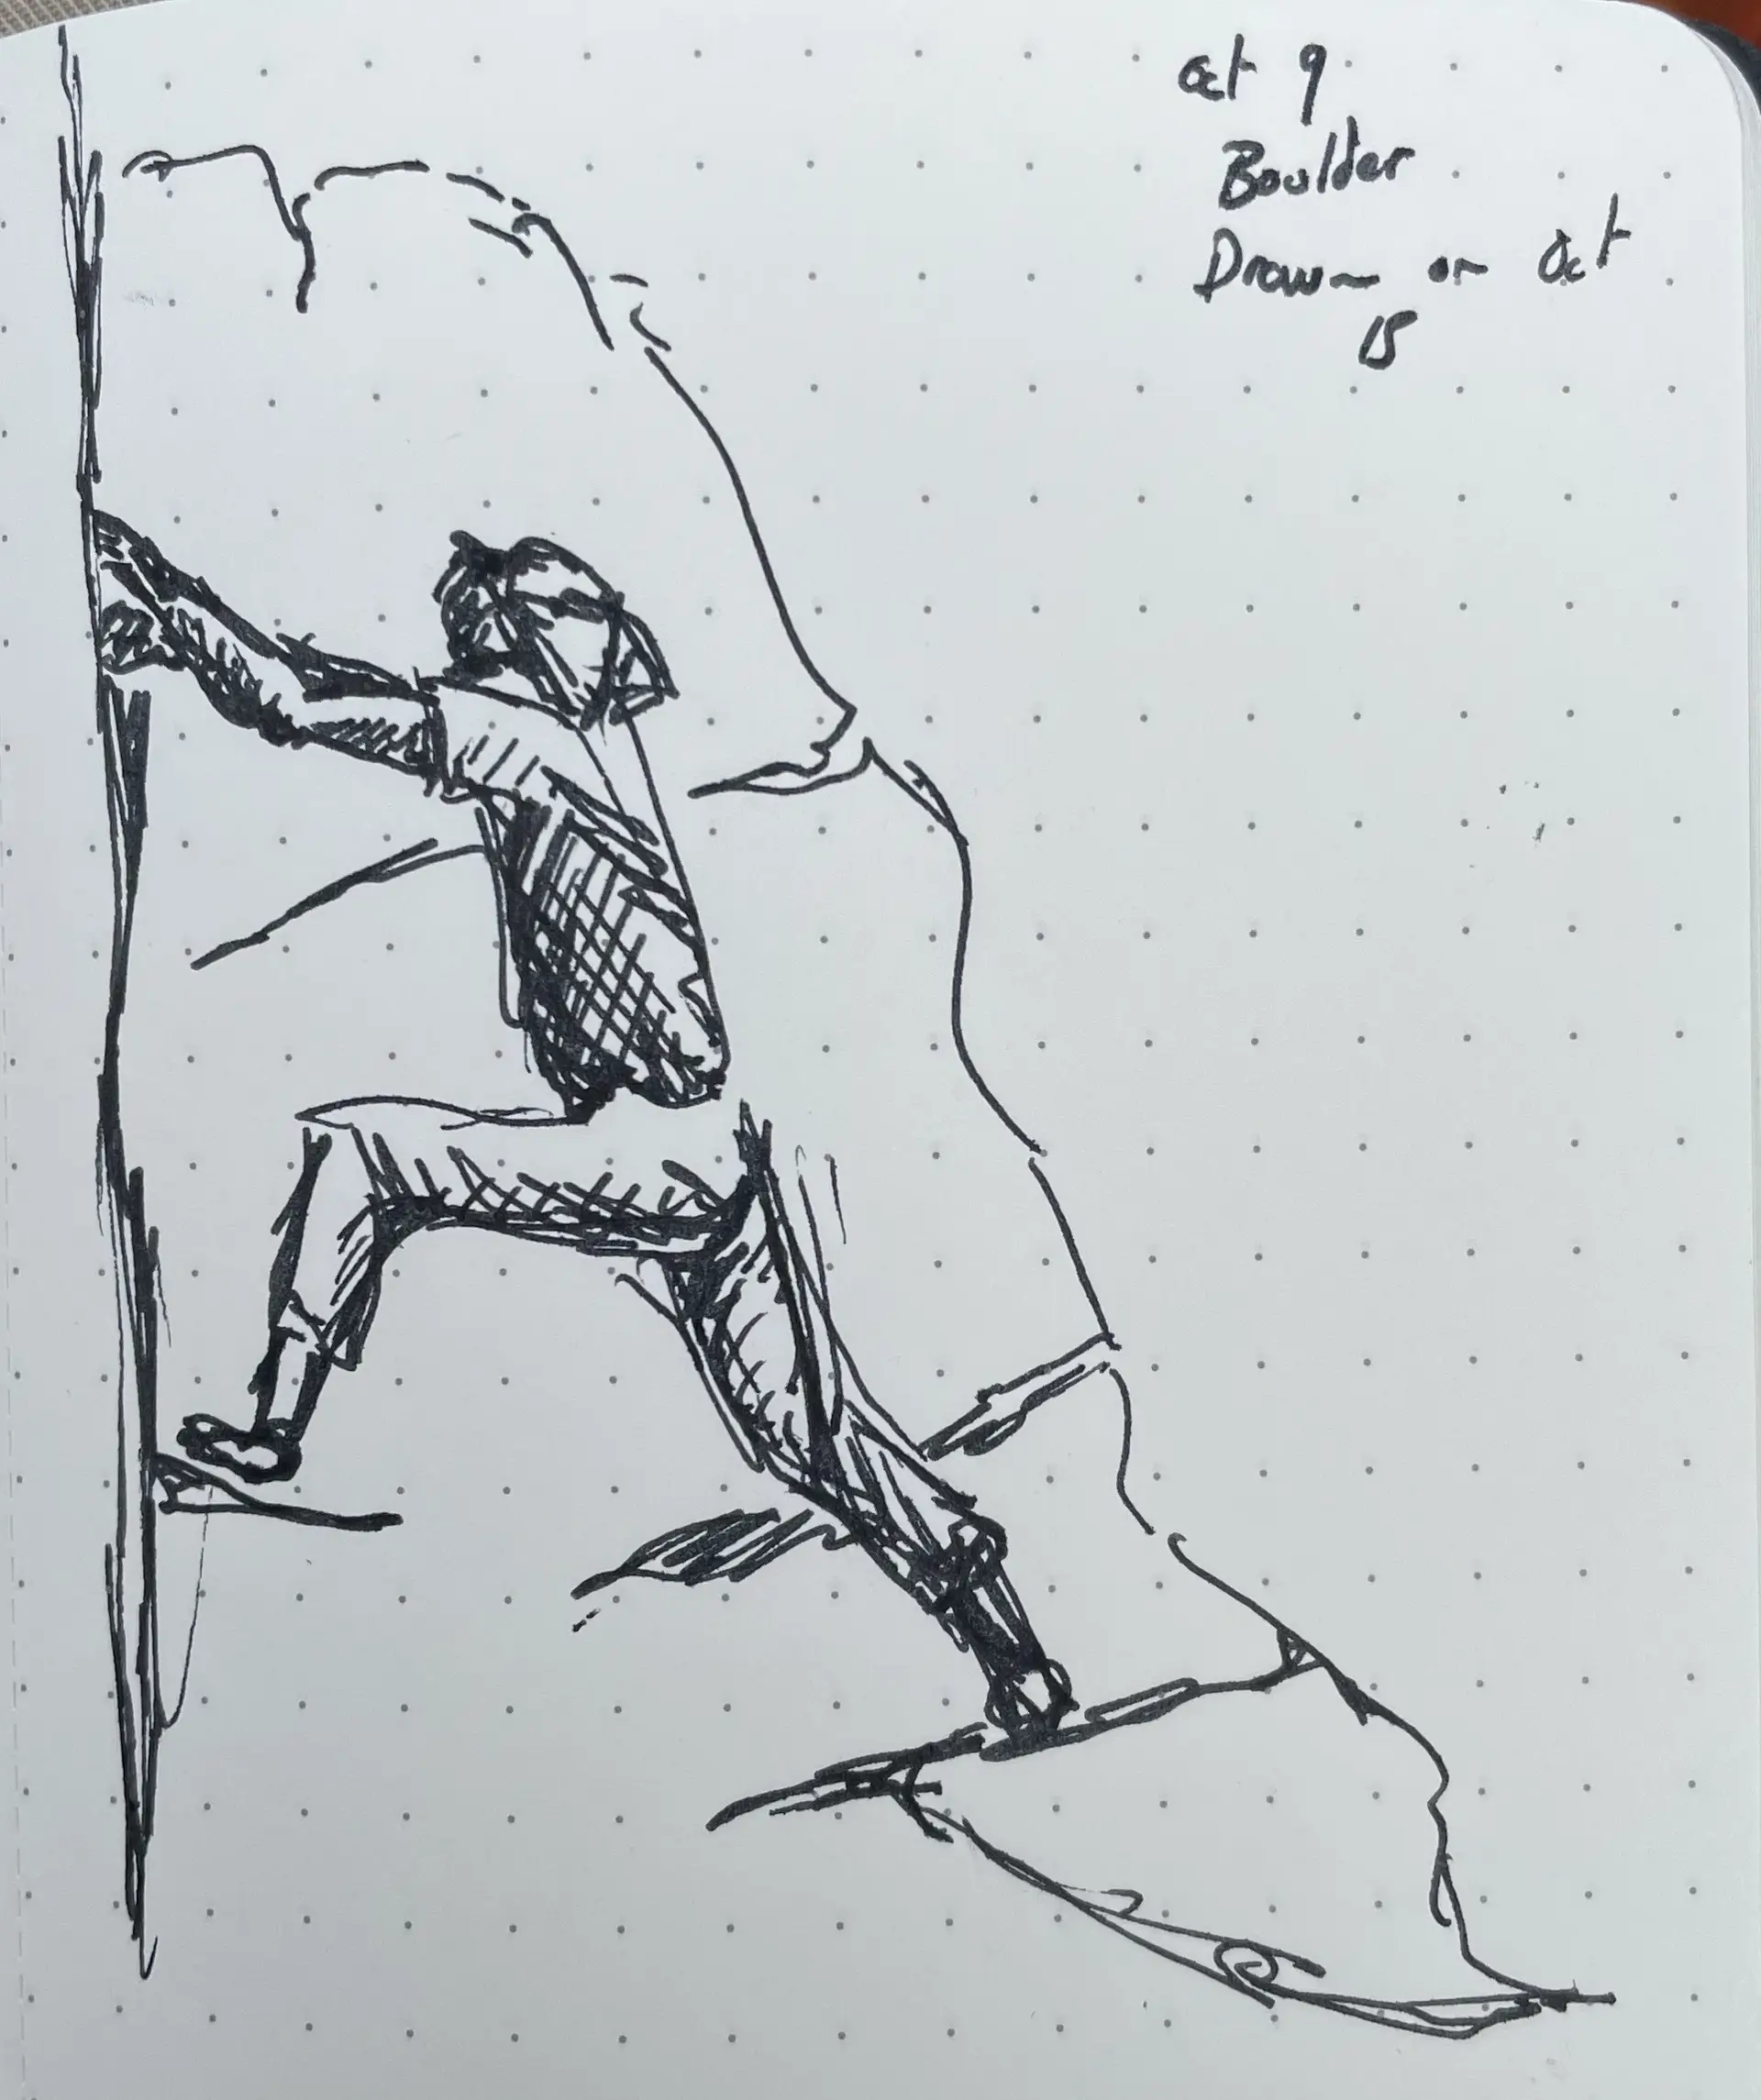 Oct 9
Boulder
Drawn on Oct
15